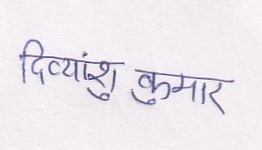 दिव्यांशु कुमार